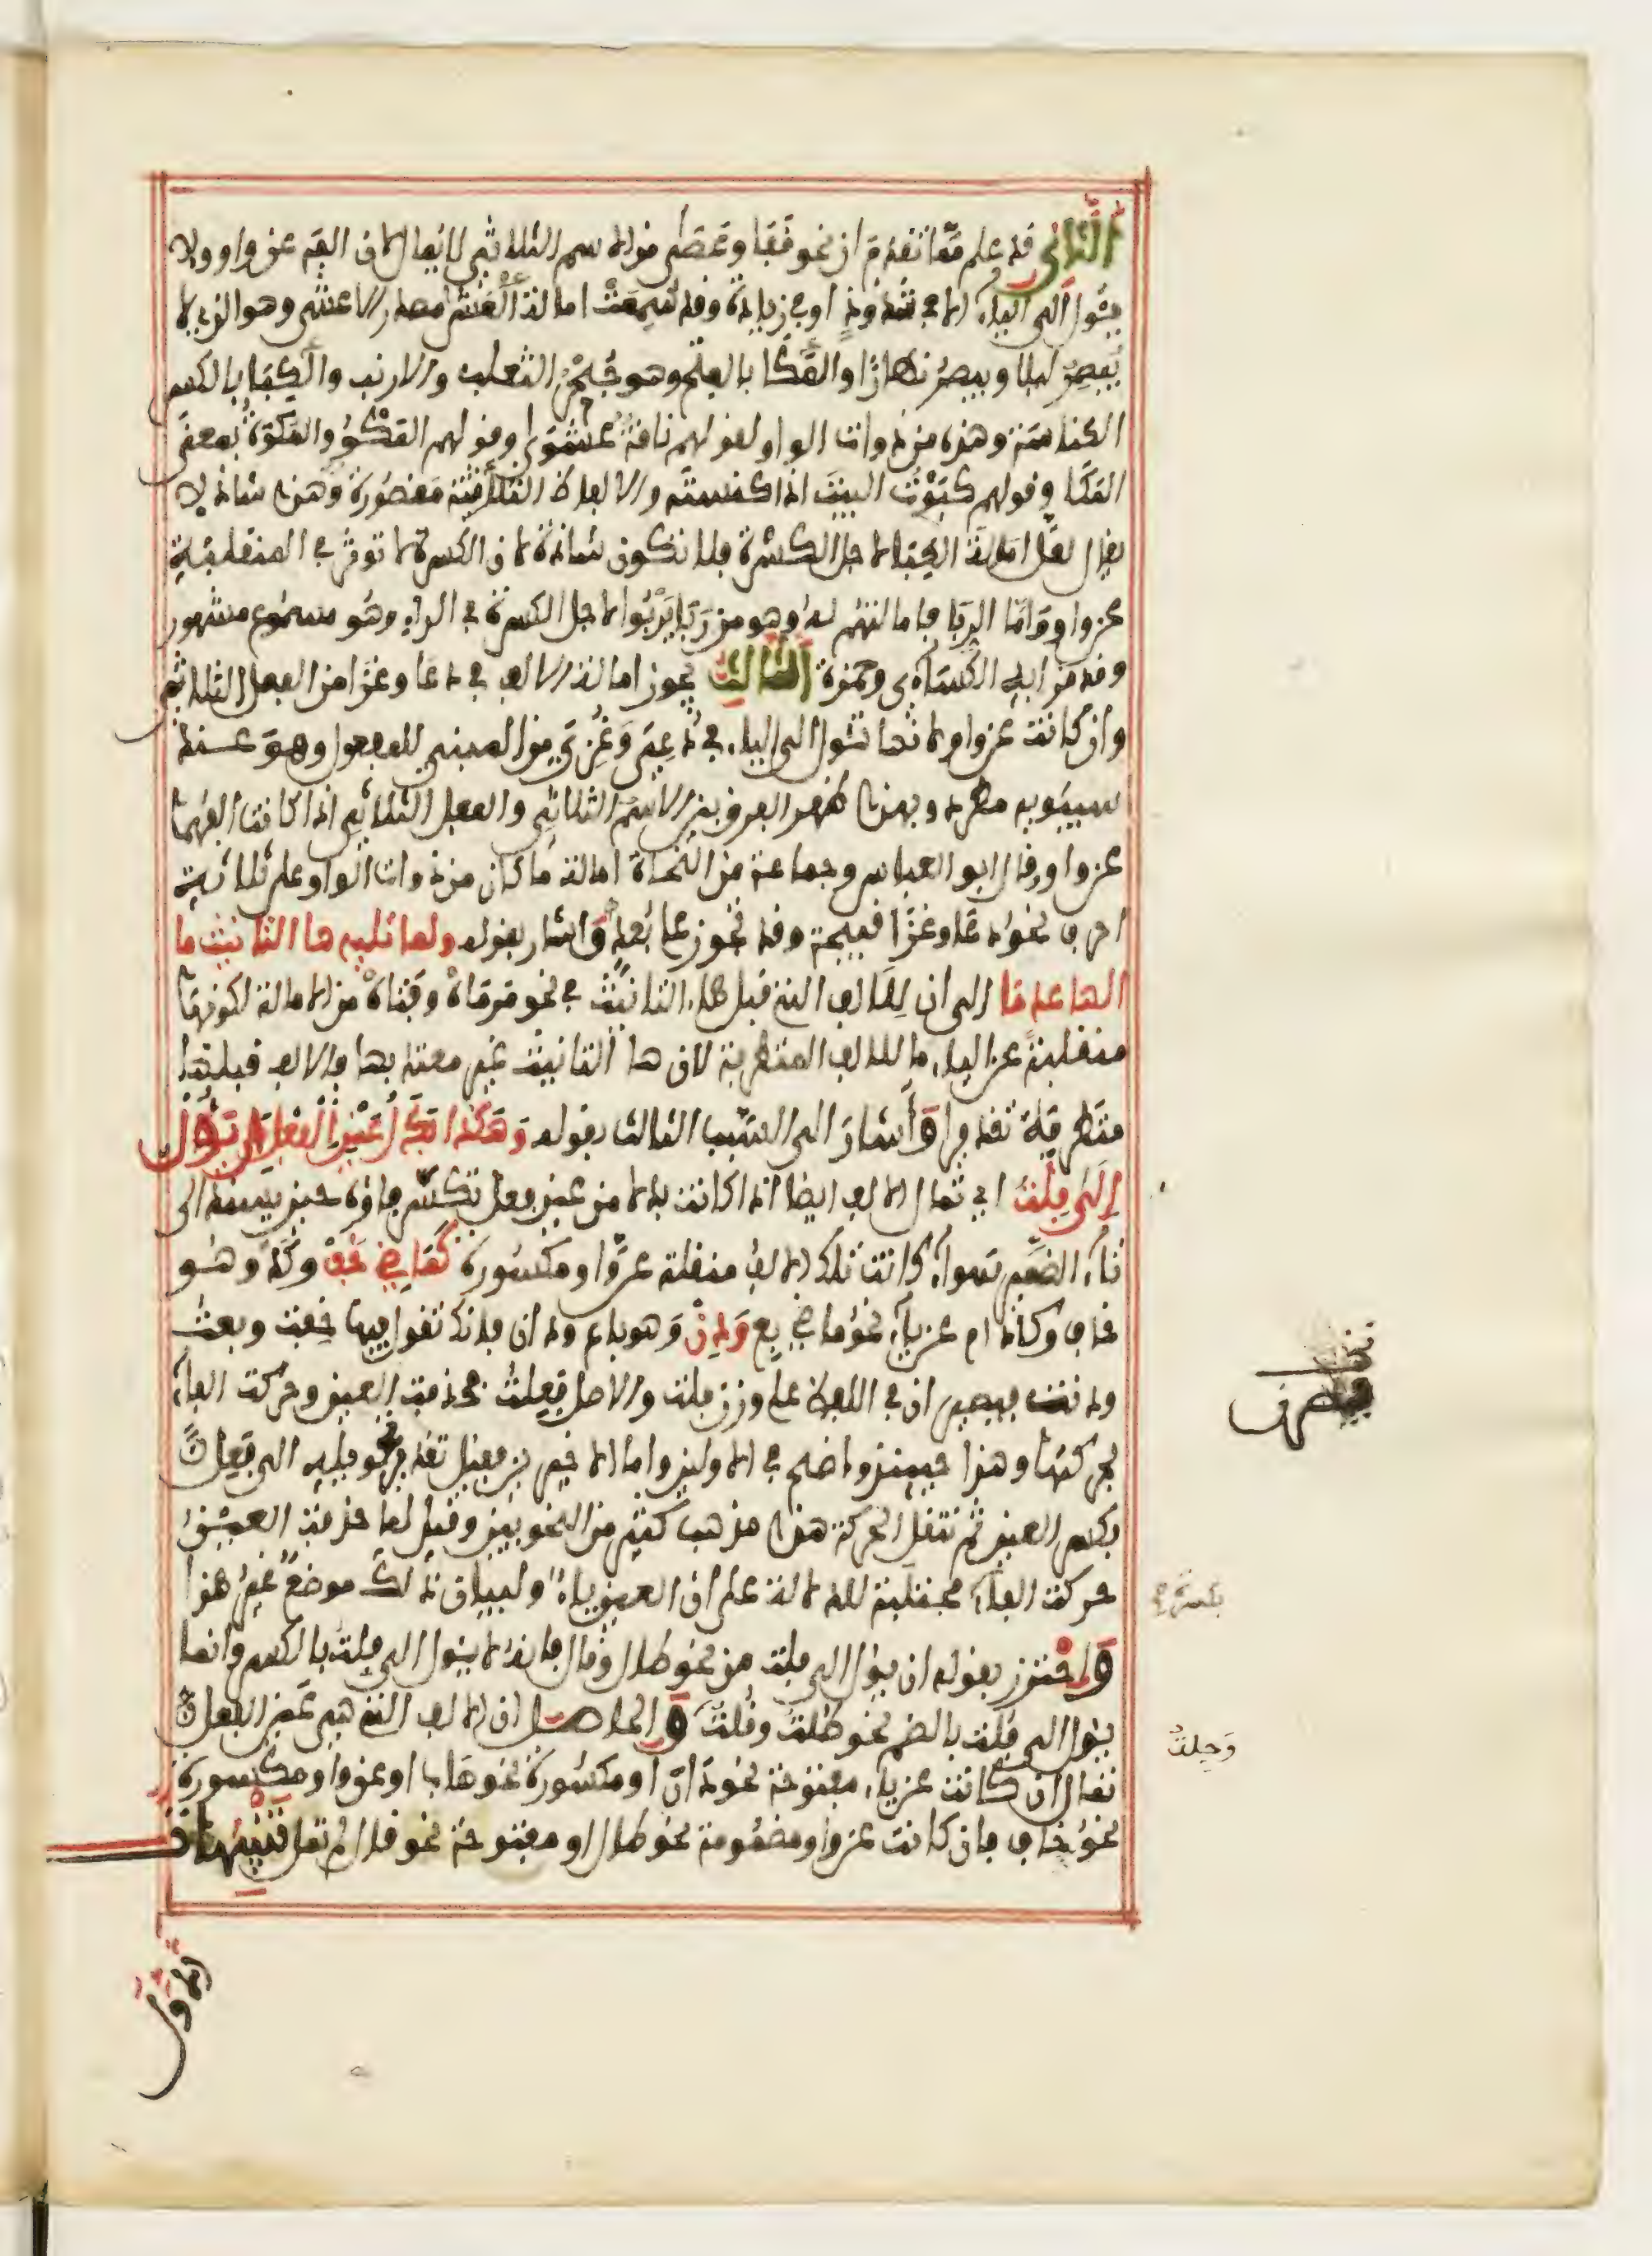 الثاني قد علم مما تقدم ان نحو قفا وعصا من الاسم الثلاثي لا يمال لان الفه عن واو ولا
يئول الى الياء الا في شذوذ او في زيادة وقد سمعت امالة العشا مصدر الاعشى وهو الذي لا
يبصر ليلا ويبصر نهارا والمكا بالفتح وهو جحر الثعلب والارنب والكبا بالكسر
الكناسة وهذه من ذوات الواو لقولهم ناقة عشوى وقولهم المكو والمكوة بمعنى
المكا وقولهم كبوت البيت اذا كنسته والالفاظ الثلاثة مقصورة وهذه شاذة لا
يقال لعل امالة الكبا لاجل الكسرة فلا تكون شاذة لان الكسرة لا توثر في المنقلبة
عن واو واما الربا فامالتهم له وهو من ربا يربوا لاجل الكسرة في الراء وهو مسموع مشهور
وقد قرا به الكساءى وحمزة الثالث يجوز امالة الالف في دعا وغزا من الفعل الثلاثي
وان كانت عن واو لانها تئول الى الياء في دعي وغزي من المبني للمفعول وهو عند
سيبويه مطرد وبهذا ظهر الفرق بين الاسم الثلاثي والفعل الثلاثي اذا كانت الفهما
عن واو وقال ابو العباس وجماعة من النحاة امالة ما كان من ذوات الواو على ثلاثة
احرف نحو دعا وغزا قبيحة وقد تجوز على بعد واشار بقوله ولما تليه ها التانيث ما
الها عدما الى ان للالف التي قبل هاء التانيث في نحو مرماة وفتاة من الامالة لكونها
منقلبة عن الياء ما للالف المتطرفة لان ها التانيث غير معتد بها فالالف قبلها
متطرفة تقديرا واشار الى السبب الثالث بقوله وهكذا بدل عين الفعل ان يؤل
الى فلت اي تمال الالف ايضا اذا كانت بدلا من عين فعل تكسر فاؤه حين يسند الى
تاء الضمير سواء كانت تلك الالف منقلبة عن واو مكسورة كماضي خف وكد وهو
خاف وكاد ام عن ياء نحو ماضي بع ودن وهو باع ودان فانك تقول فيها خفت وبعت
ودنت فيصيران في اللفظ على وزن فلت والاصل فعلت فحذفت العين وحركت الفاء
بحركتها وهذا حينئذ واضح في الاولين واما الاخير بن فقيل تقدير تحويله الى فعل
بكسر العين ثم تنقل الحركة هذا مذهب كثير من النحويين وقيل لما حذفت العين
حركت الفاء مجتلبة للدلالة على ان العين ياء ولبيان ذلك موضع غير هذا
واحترز بقوله ان يؤل الى فلت من نحو طال وقال فانه لا يئول الى فلت بالكسر وانما
يئول الى فلت بالضم نحو طلت وقلت والحاصل ان الالف التي هي عين الفعل
تمال ان كانت عن ياء مفتوحة نحو دان او مكسورة نحو هاب او عن واو مكسورة
نحو خاف فان كانت عن واو مضمومة نحو طال او مفتوحة نحو قال لم تمل تنبيهات
الاول
وحلت